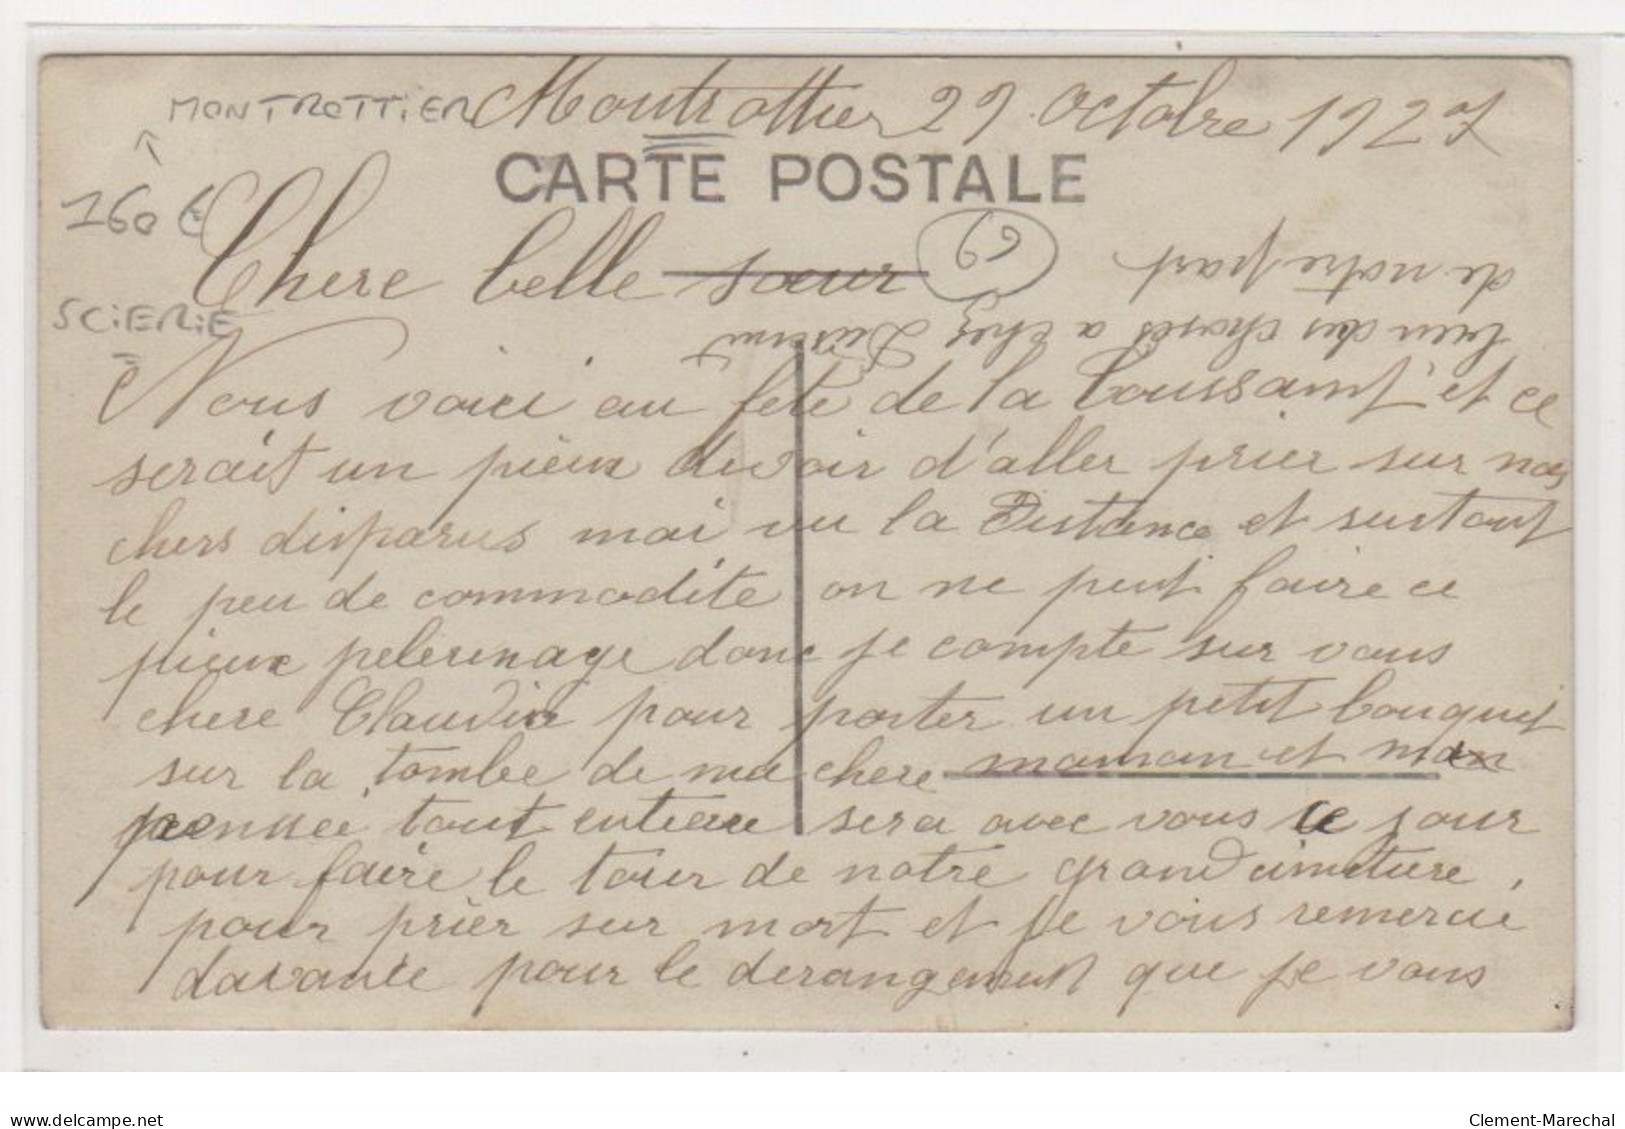 MONTROTTIER Montrottier 29 Octobre 1927
CARTE POSTALE
160 €
Chere belle soeur
69
SCIERIE
de notre part
bien des choses a chez
Nous voici au fete de la Toussaint, et ce
serait un pieux devoir d'aller prier sur nos
chers disparus mai vu la Distance et surtout
le peu de commodite on ne peut faire ce
pieux pelerinage donc je compte sur vous
chere Claudia pour porter un petit bouquet
sur la tombe de ma chere maman et ma
pensee tout entiere sera avec vous ce jour
pour faire le tour de notre grand cimetiere,
pour prier sur mort et je vous remercie
davance pour le derangement que je vous
delcampe.net
Clement-Marechal